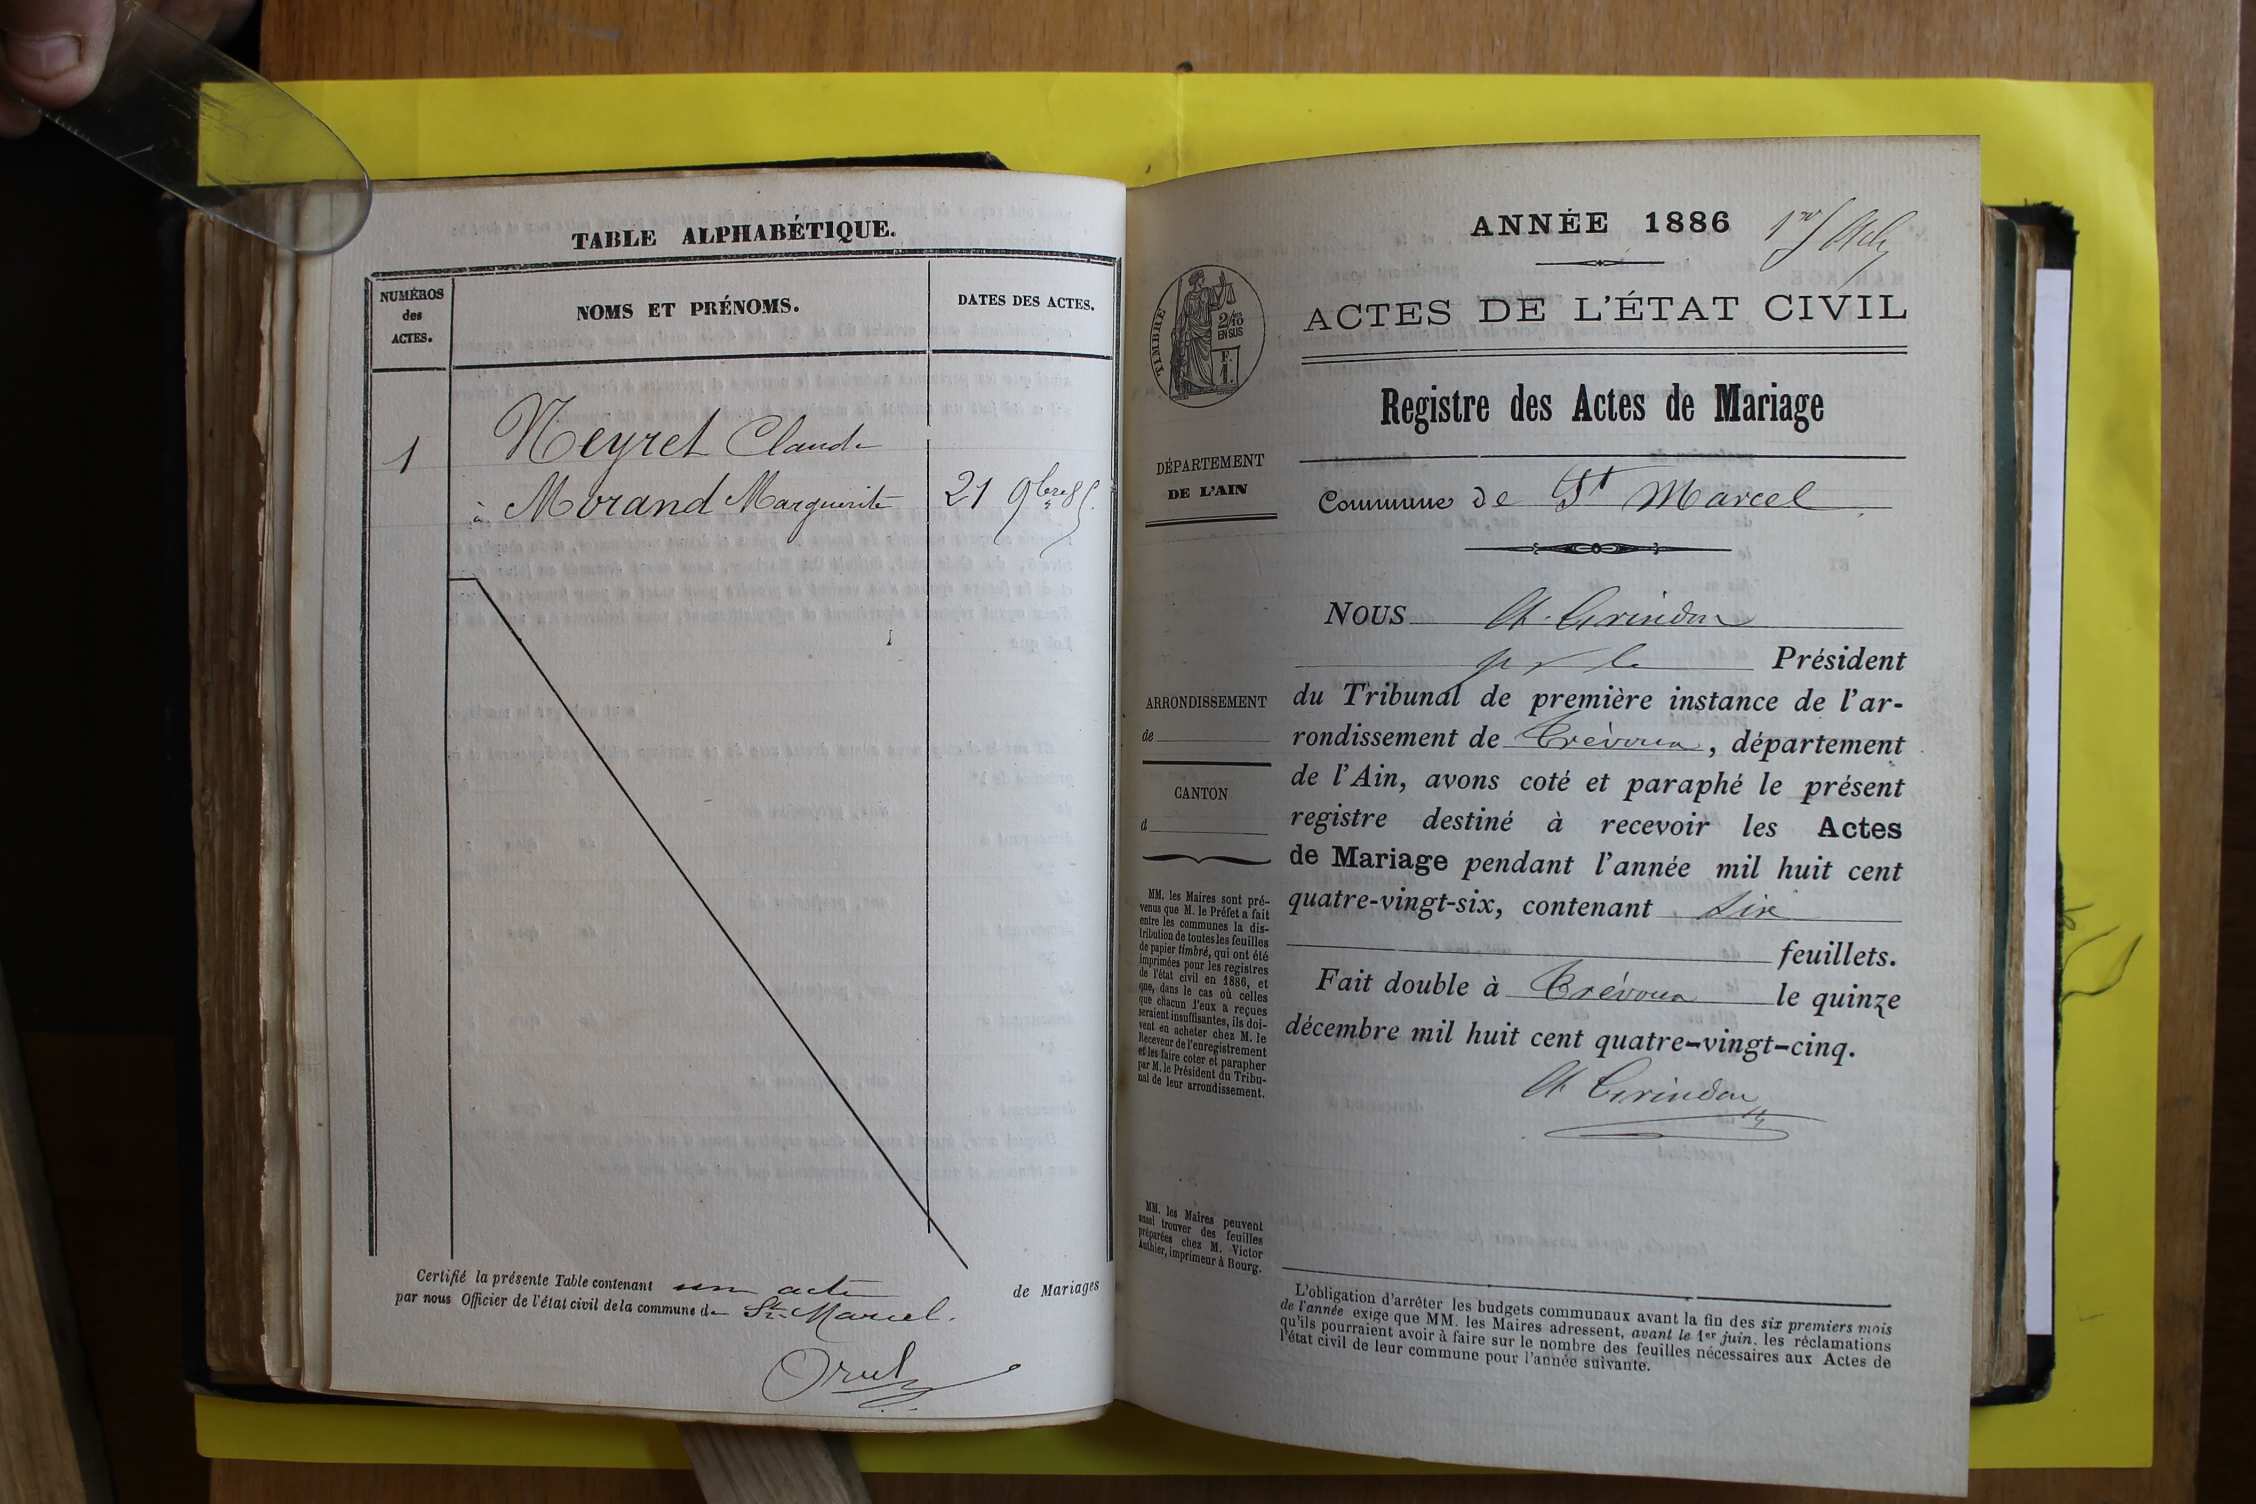 TABLE ALPHABÉTIQUE.
NUMÉROS
des
ACTES.
NOMS ET PRÉNOMS.
DATES DES ACTES.
1
Neyret Claude
à Morand Marguerite
21 9bre 85.
Certifié la présente Table contenant un acte de Mariages
par nous Officier de l'état civil de la commune de St. Marcel.
ANNÉE 1886
ACTES DE L'ÉTAT CIVIL
TIMBRE
2/10
EN SUS
F.
1.
Registre des Actes de Mariage
DÉPARTEMENT
DE L'AIN
Commune de St Marcel
NOUS Ch. Grindon
Président
ARRONDISSEMENT
de
CANTON
d
du Tribunal de première instance de l'ar-
rondissement de Trévoux, département
de l'Ain, avons coté et paraphé le présent
registre destiné à recevoir les Actes
de Mariage pendant l'année mil huit cent
quatre-vingt-six, contenant six
feuillets.
Fait double à Trévoux le quinze
décembre mil huit cent quatre-vingt-cinq.
Ch Grindon
MM. les Maires sont pré-
venus que M. le Préfet a fait
entre les communes la dis-
tribution de toutes les feuilles
de papier timbré, qui ont été
imprimées pour les registres
de l'état civil en 1886, et
que, dans le cas où celles
que chacun d'eux a reçues
seraient insuffisantes, ils doi-
vent en acheter chez M. le
Receveur de l'enregistrement
et les faire coter et parapher
par M. le Président du Tribu-
nal de leur arrondissement.
MM. les Maires peuvent
aussi trouver des feuilles
préparées chez M. Victor
Authier, imprimeur à Bourg.
L'obligation d'arrêter les budgets communaux avant la fin des six premiers mois
de l'année exige que MM. les Maires adressent, avant le 1er juin, les réclamations
qu'ils pourraient avoir à faire sur le nombre des feuilles nécessaires aux Actes de
l'état civil de leur commune pour l'année suivante.